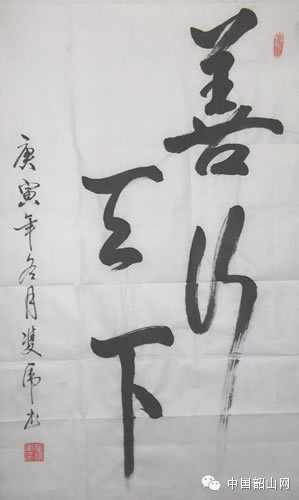 善行
天下
庚寅年冬月双虎书
中国韶山网